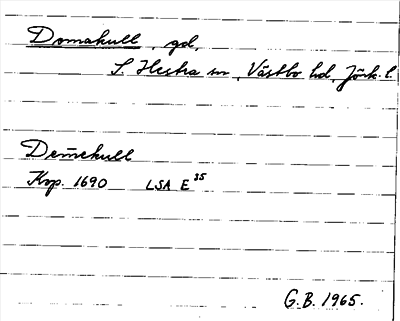 Domakull, gd,
S. Hestra sn, Västbo hd, Jönk. l.
Dem̄ekull
Kop. 1690 LSA E 35
G.B. 1965.